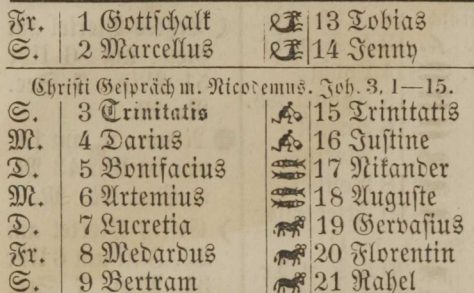 Fr. 1 Gottschalk 13 Tobias
S. 2 Marcellus 14 Jenny
Christi Gespräch m. Nicodemus. Joh. 3, 1—15.
S. 3 Trinitatis 15 Trinitatis
M. 4 Darius 16 Justine
D. 5 Bonifacius 17 Nikander
M. 6 Artemius 18 Auguste
D. 7 Lucretia 19 Gervasius
Fr. 8 Medardus 20 Florentin
S. 9 Bertram 21 Rahel